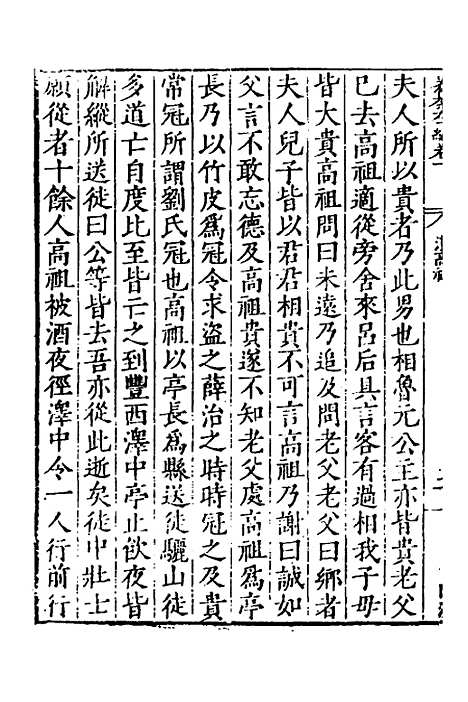 漢高祖
夫人所以貴者乃此男也相魯元公主亦皆貴老父
已去高祖適從旁舍來呂后具言客有過相我子母
皆大貴高祖問曰未遠乃追及問老父老父曰鄉者
夫人兒子皆以君君相貴不可言高祖乃謝曰誠如
父言不敢忘德及高祖貴遂不知老父處高祖爲亭
長乃以竹皮爲冠令求盜之薛治之時時冠之及貴
常冠所謂劉氏冠也高祖以亭長爲縣送徒驪山徒
多道亡自度比至皆亡之到豐西澤中亭止飲夜皆
解縱所送徒曰公等皆去吾亦從此逝矣徒中壯士
願從者十餘人高祖被酒夜徑澤中令一人行前行